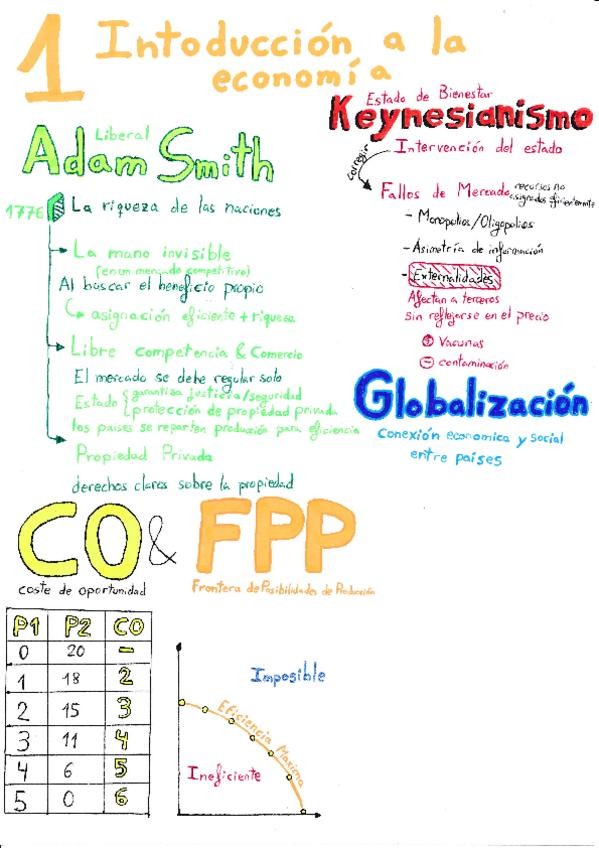 1 Intoducción a la
economía
Liberal
Adam Smith
1776 La riqueza de las naciones
La mano invisible
(en un mercado competitivo)
Al buscar el beneficio propio
asignación eficiente + riqueza
Libre competencia & Comercio
El mercado se debe regular solo
Estado garantiza justicia/seguridad
protección de propiedad privada
los países se reparten producción para eficiencia
Propiedad Privada
derechos claros sobre la propiedad
Estado de Bienestar
Keynesianismo
Intervención del estado
corregir
Fallos de Mercado recursos no
asignados eficientemente
- Monopolios/Oligopolios
- Asimetría de información
- Externalidades
Afectan a terceros
sin reflejarse en el precio
+ Vacunas
- contaminación
Globalización
conexión economica y social
entre países
CO & FPP
coste de oportunidad
Frontera de Posibilidades de Producción
P1 P2 CO
0 20 -
1 18 2
2 15 3
3 11 4
4 6 5
5 0 6
Imposible
Eficiencia Maxima
Ineficiente